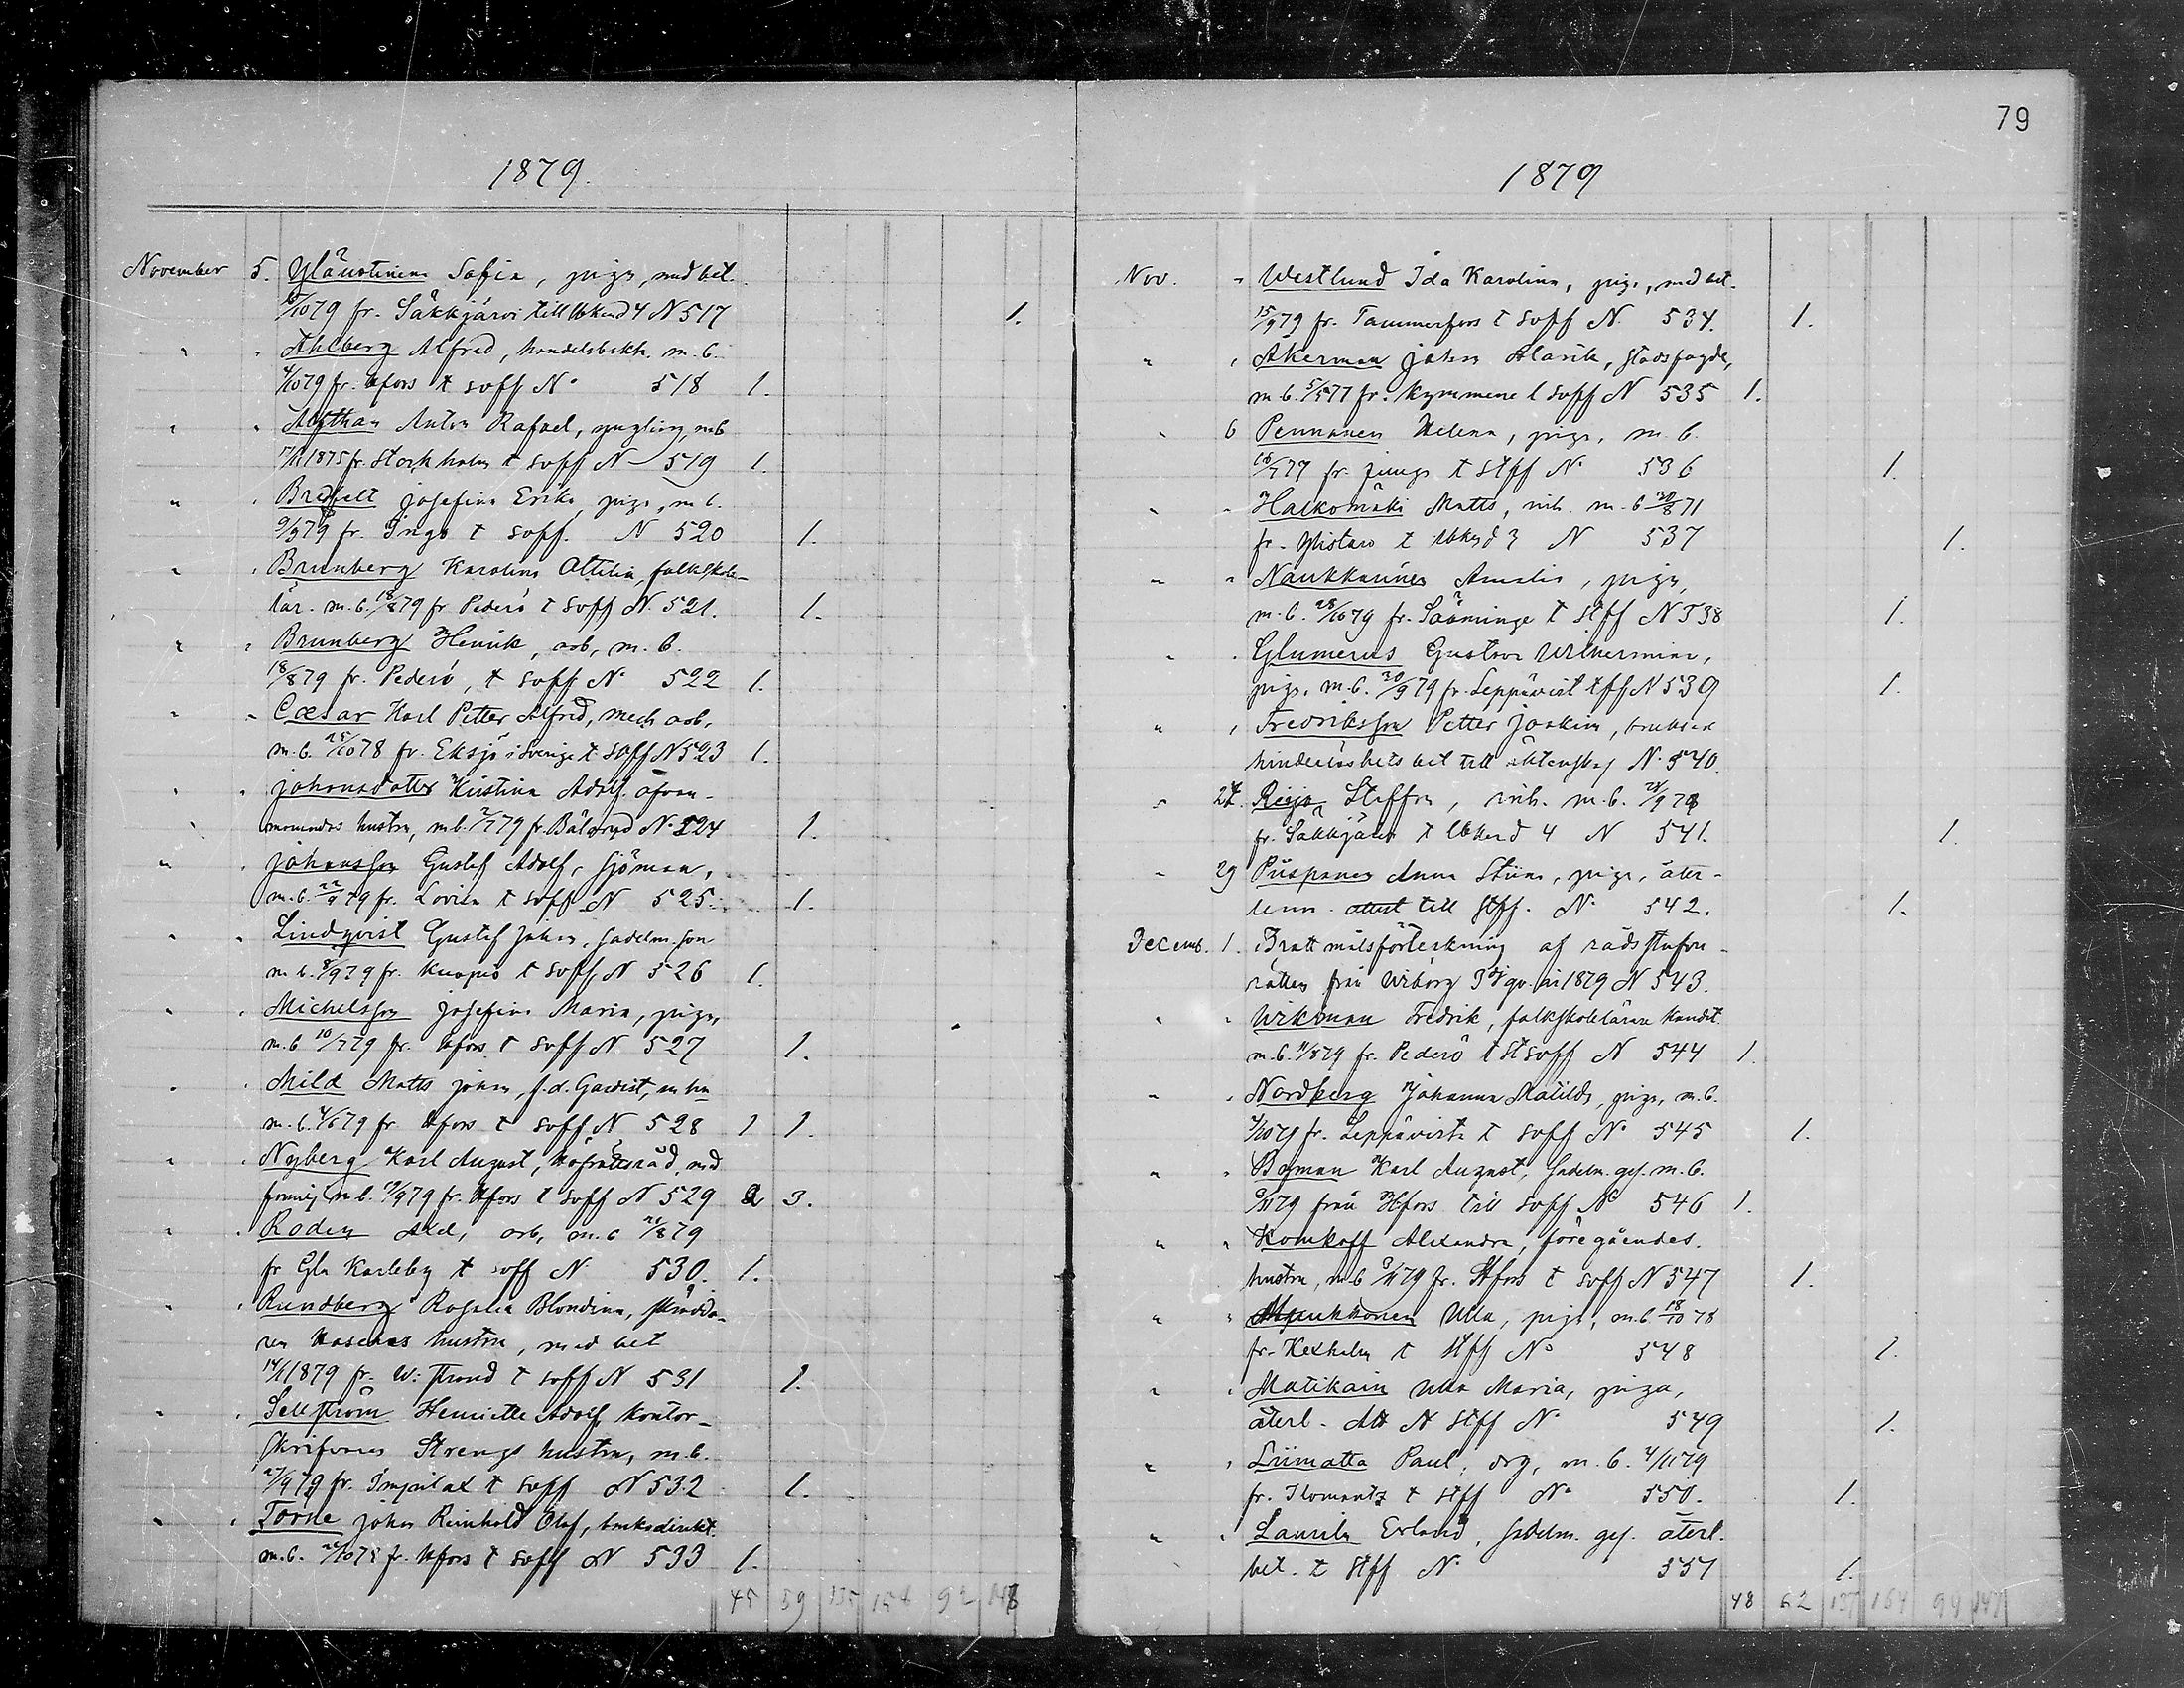 79
1879.
November 5. Yläuotinen Sofia, piga, med bet.
6/10 79 fr. Säkkjärvi till Wbkend 4 N 517 1.
" " Ahlberg Alfred, handelsbokh. m. b.
4/10 79 fr. Hfors t soff No 518 1.
" " Alfthan Anton Rafael, yngling, m b
1875 fr. Stockholm t soff N 519 1.
" " Bredfelt Josefina Erika piga, m b.
9/9 79 fr. Ingo t soff. N 520 1.
" " Brunberg Karolina Ottilia, folkskole-
lär. m. b. 18/8 79 fr Pederö t soff N. 521. 1.
" " Brunberg Henrik, arb, m. b.
18/8 79 fr. Pederö, t soff No 522 1.
" " Cæsar Karl Petter Alfred, mech arb,
m. b. 25/10 78 fr. Eksjö i Sverige t soff N 523 1.
" " Johansdotter Kristina Adolf. ofvan-
nämndes hustru, m b. 7/7 79 fr. Bälaryd No 524 1.
" " Johansson Gustaf Adolf, Sjöman,
m. b. 22/9 79 fr. Lovisa t soff N 525. 1.
" " Lindqvist Gustaf Johan, sadelm. son
m b. 8/9 79 fr. Kuopio t soff N 526 1.
" " Michelsson Josefina Maria, piga,
m. b 10/7 79 fr. Hfors t soff N 527 1.
" " Mild Matts Johan, f. d. Gardist, m hu
m. b. 4/6 79 fr Hfors t soff N 528 1 1.
" " Nyberg Karl August, Hofrättsråd, med
familj m b. 9/9 79 fr. Hfors t soff N 529 2 3.
" " Roden Axel, arb, m. b 21/8 79
fr Gla Karleby t soff N 530. 1.
" " Rundberg Rosalia Blondina, skrädda-
ren hustru, med bet
1879 fr. W: strand t soff N 531 1.
" " Sellström Henriette Adolf. Kontor-
skrifvares Strengs hustru, m. b.
27/9 79 fr. Impilax t soff N 532 1.
" " Törne Johan Reinhold Olof, banksdirekt.
m. b. 22/10 78 fr. Hfors t soff N 533 1.
45 59 135 154 92 146
1879
Nov. " Westlund Ida Karolina, piga, med bet.
15/9 79 fr. Tammerfors t soff N. 534. 1.
" " Åkerman Johan Alarik, stadsfogde,
m b. 5/5 77 fr. Kymmene t soff N 535 1.
" 6 Pennanen Helena, piga, m. b.
18/7 77 fr. Jungs t stff No 536 1.
" " Halkomäki Matts, inh. m. b 30/8 71
fr. Ylistaro t Wbkend 3 N 537 1.
" " Naukkarinen Amalia, piga,
m. b. 28/10 79 fr. Sääminge t stff N 538 1.
" " Glumerus Gustava Wilhermina,
piga, m. b. 30/9 79 fr. Leppävirt t ff N 539 1.
" " Fredriksson Petter Joakim,
hinderlöshets bet till äktenskap N. 540.
" 24. Reijo Staffan, inh. m. b. 28/9 79
fr. Säkkjärvi t Wbkend 4 N 541. 1.
" 29 Puspanen Anna Stiina, piga, åter-
lemn. attest till stff. No 542. 1.
Decemb. 1. Brottmålsförteckning af rådstufvu-
rätten från Wiborg 3dj qv. år 1879 N 543.
" " Wikman Fredrik, folkskolelärare kandit.
m. b. 11/8 79 fr. Pederö t St soff N 544 1.
" " Nordberg Johanna Matilda, piga, m. b.
4/10 79 fr. Leppävirta t soff No 545 1.
" " Boman Karl August, sadelm. ges. m. b.
6/11 79 från Hfors till soff No 546 1.
" " Komkoff Alexandra, föregåendes.
hustru, m b 6/11 79 fr. Hfors t soff N 547 1.
" " Mjukkonen Ulla, piga, m. b. 18/10 78
fr. Kexholm t stff No 548 1.
" " Matikain Ulla Maria, piga,
återl. Att N stff No 549 1.
" " Liimatta Paul, drg, m. b. 4/11 79
fr. Ilomantz t stff No 550. 1.
" " Laurila Erland, sadelm. ges. återl.
bet. t stff No 551 1.
48 62 137 164 94 147